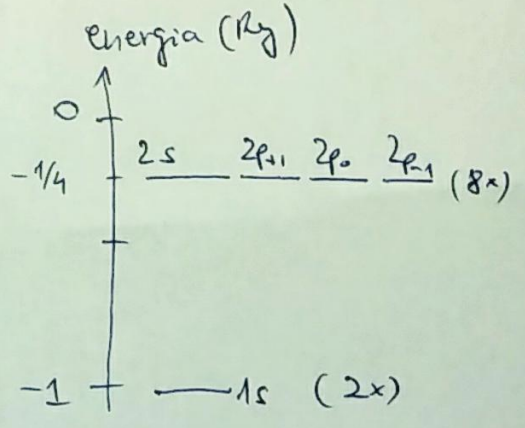 energia (Ry)
0
-1/4 2s 2p+1 2p0 2p-1 (8x)
-1 1s (2x)